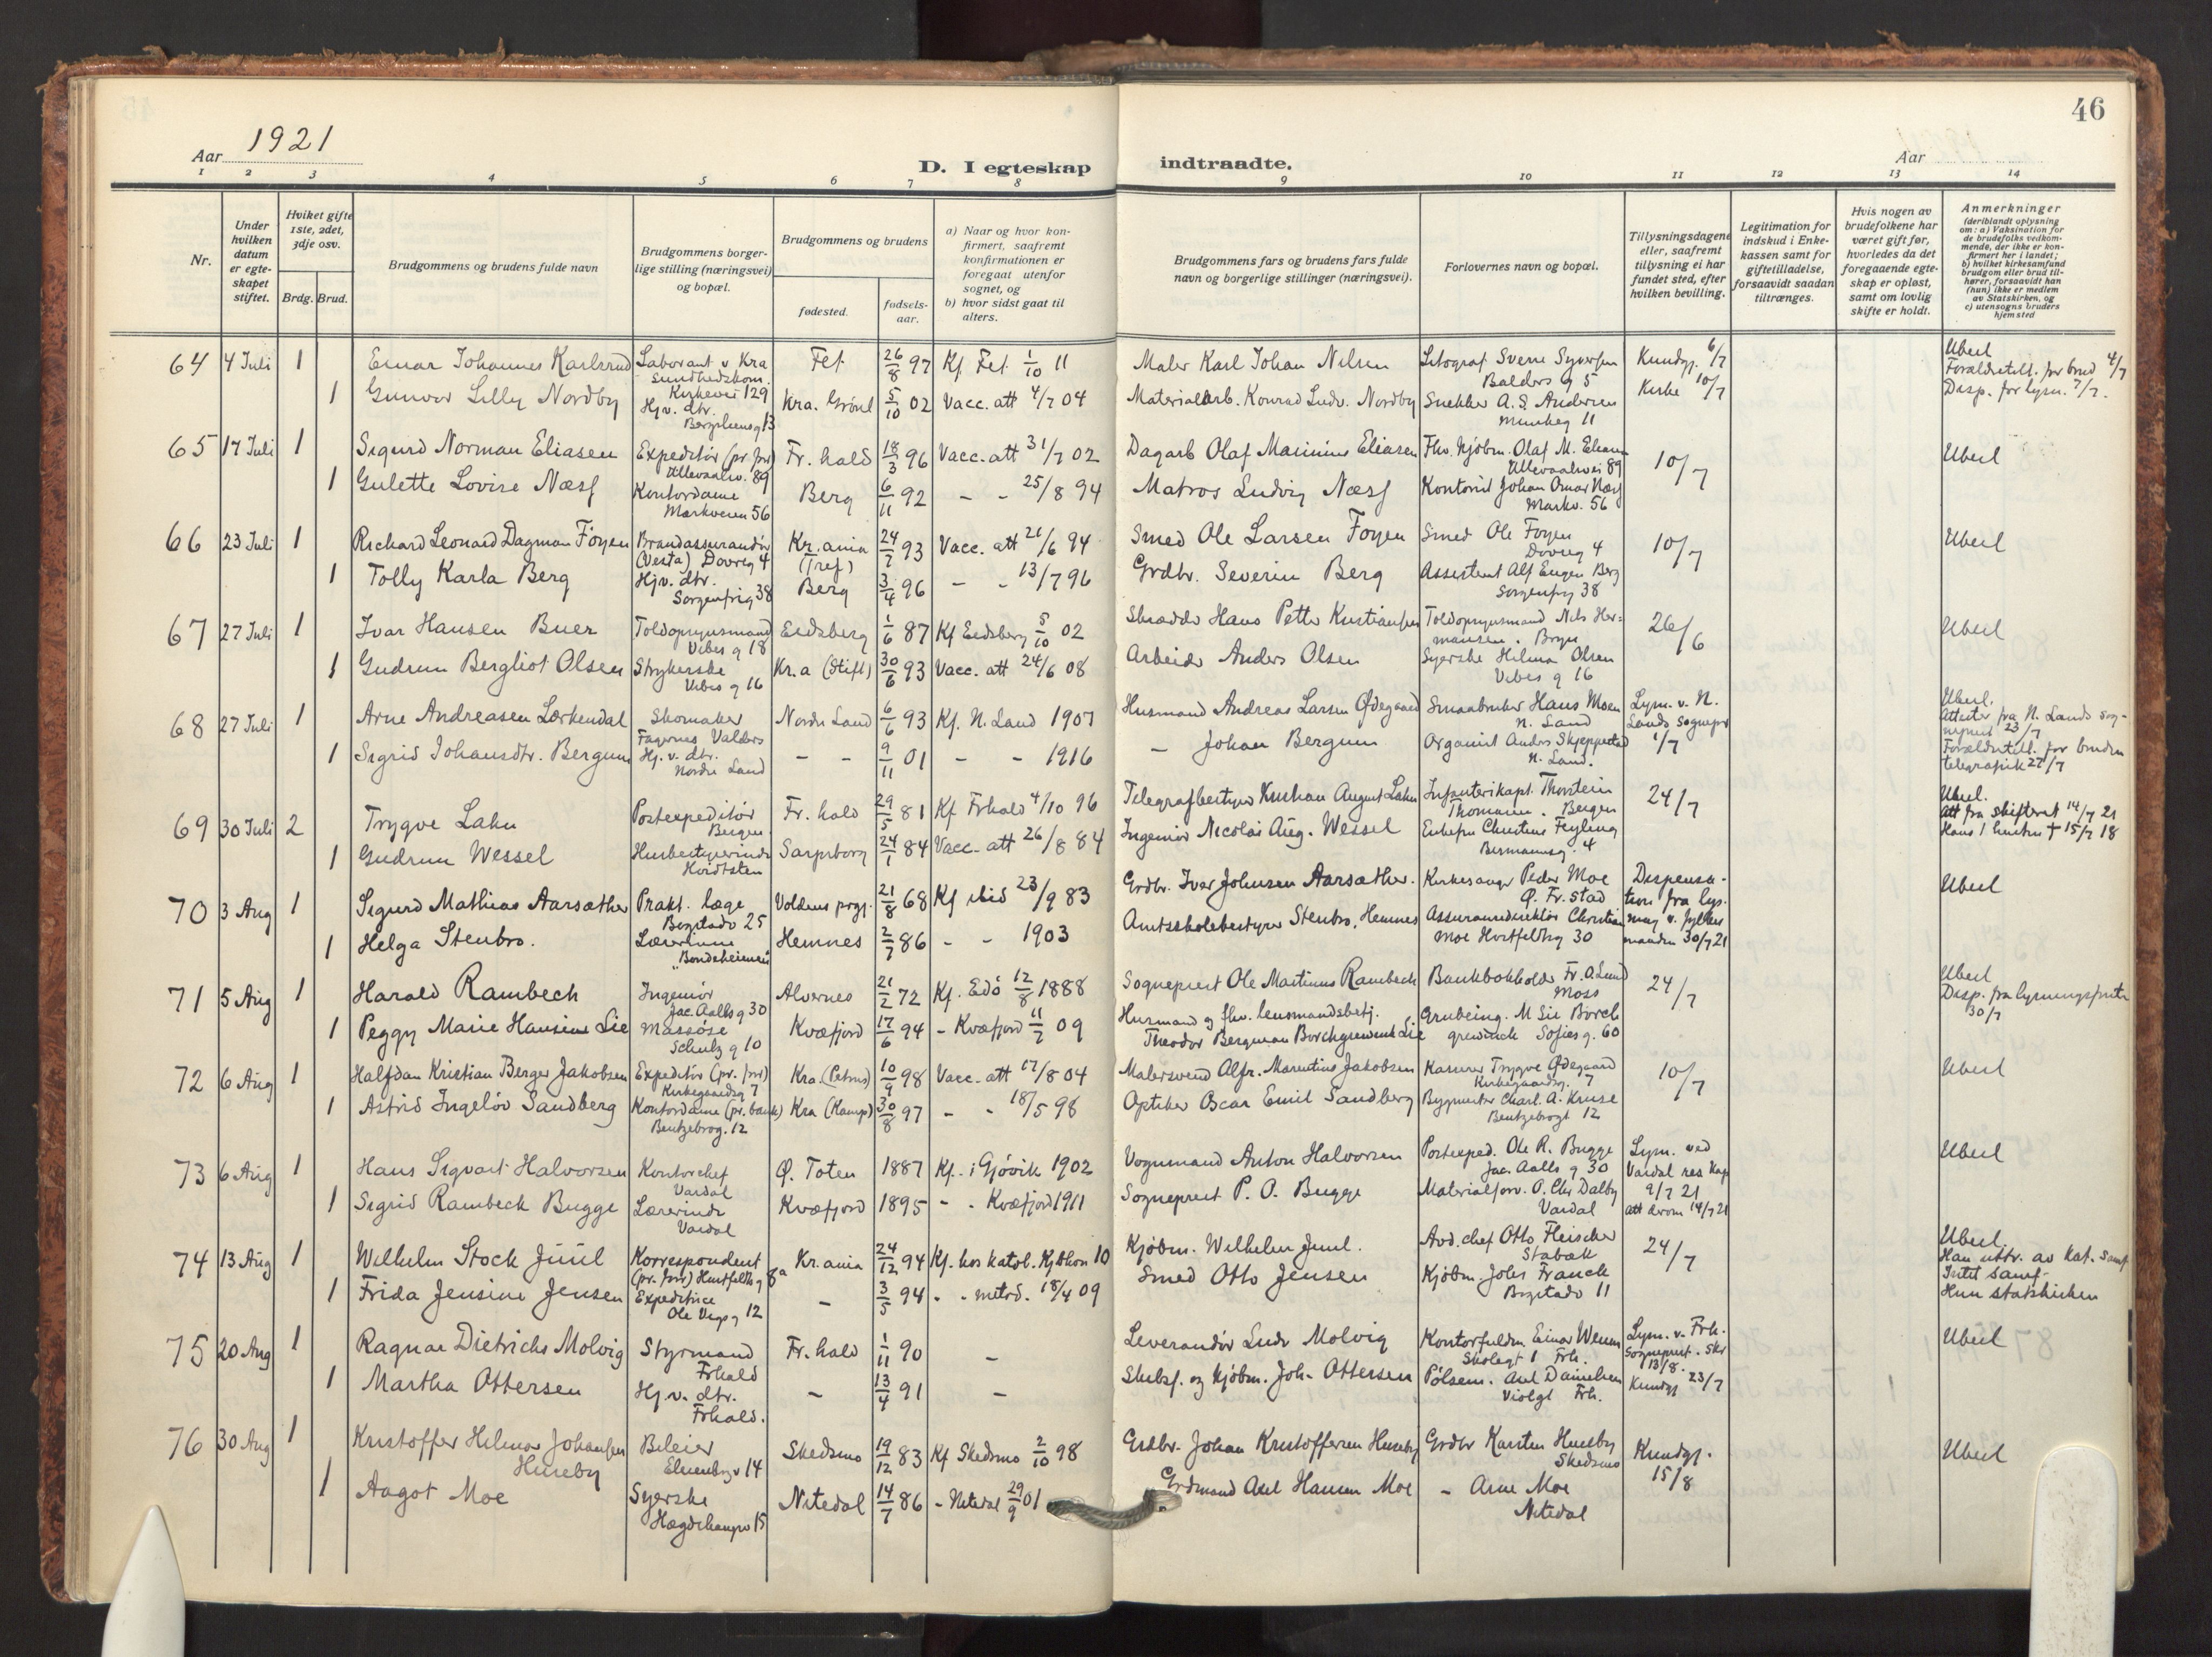 46
Aar 1921
D. I egteskap indtraadte.
Aar
1 2 3 4 5 6 7 8 9 10 11 12 13 14
Nr.
Under hvilken datum er egteskapet stiftet.
Hvilket gifte 1ste, 2det, 3dje osv.
Brdg. Brud.
Brudgommens og brudens fulde navn
Brudgommens borgerlige stilling (næringsvei) og bopæl.
Brudgommens og brudens
fødested.
fødsels-aar.
a) Naar og hvor konfirmert, saafremt konfirmationen er foregaat utenfor sognet, og
b) hvor sidst gaat til alters.
Brudgommens fars og brudens fars fulde navn og borgerlige stillinger (næringsvei).
Forlovernes navn og bopæl.
Tillysningsdagene eller, saafremt tillysning ei har fundet sted, efter hvilken bevilling.
Legitimation for indskud i Enkekassen samt for giftetilladelse, forsaavidt saadan tiltrænges.
Hvis nogen av brudefolkene har været gift før, hvorledes da det foregaaende egteskap er opløst, samt om lovlig skifte er holdt.
Anmerkninger
(deriblandt oplysning om: a) Vaksination for de brudefolks vedkommende, der ikke er konfirmert her i landet; b) hvilket kirkesamfund brudgom eller brud tilhører, forsaavidt han (hun) ikke er medlem av Statskirken, og c) utensogns bruders hjemsted
64 4 Juli 1 Einar Johannes Karlsrud Laborant v Kra Sundhedskom. Kirkevei 129 Fet 26/8 97 Kf. Fet 1/10 11 Maler Karl Johan Nilsen Litograf Sverre Syversen Balders g 5 Kundgj. 6/7 Ubesl
1 Gunvor Lilly Nordby Hj.v. dtr. 13 Kra. Grønl 5/10 02 Vacc. att 4/7 04 Materialarb. Konrad Ludv. Nordby Snekker A. S. Andersen 11 Kirke 10/7 Forældretill. for brud 4/7 Disp. for lysn. 7/7.
65 17 Juli 1 Sigurd Norman Eliasen Expeditør (pr. för) Ullevaalsv. 89 Fr. hald 18/3 96 Vacc. att 31/7 02 Dagarb Olaf Marinius Eliasen Fhv. kjøbm. Olaf M. Eliasen Ullevaalsvei 89 10/7 Ubesl
1 Gulette Lovise Næss Kontordame Markveien 56 Berg 6/11 92 - - 25/8 94 Matros Ludvig Næss Kontorist Johan Omar Næss Markv. 56
66 23 Juli 1 Richard Leonard Dagman Foyen Brandassurandør (Vesta) Dovreg 4 Kr.ania (Tref) 24/7 93 Vacc. att 21/6 94 Smed Ole Larsen Foyen Smed Ole Foyen Dovreg 4 10/7 Ubesl
1 Tolly Karla Berg Hj.v. dtr. Sorgenfrig 38 Berg 3/4 96 - - 13/7 96 Grdbr. Severin Berg Assistent Alf Eugen Berg Sorgenfrig 38
67 27 Juli 1 Ivar Hansen Buer Toldopsynsmand Vibes g 18 Eidsberg 1/6 87 Kf Eidsberg 5/10 02 Skrædder Hans Petter Kristiansen Toldopsynsmand Nils Hermansen. Bryn 26/6 Ubesl
1 Gudrun Bergliot Olsen Strykerske Vibes g 16 Kr.a (Stift) 30/6 93 Vacc. att 24/6 08 Arbeider Anders Olsen Syerske Helma Olsen Vibes g 16
68 27 Juli 1 Arne Andreasen Lærkendal Skomaker Fagernes Valdres Nordre Land 6/6 93 Kf. N. Land 1907 Husmand Andreas Larsen Ødegaard Smaabruker Hans Moen N. Land Lysn. v. N. Lands sognepr 1/7 Ubesl. Attester fra N. Lands sogneprest 23/7
1 Sigrid Johansdtr. Bergum Hj. v. dtr. Nordre Land - - 9/11 01 - - 1916 - Johan Bergum Organist Anders Skjeppestad N. Land. Forældretill. for bruden telegrafisk 27/7
69 30 Juli 2 Trygve Lahn Postexpeditør Bergen Fr. hald 29/5 81 Kf Frhald 4/10 96 Telegrafbestyrer Kristian August Lahn Infanterikapt. Thorstein Thomassen. Bergen 24/7 Ubesl. Att fra skifteret 14/7 21 Hans 1 hustru † 15/7 18
1 Gudrun Wessel Husbestyrerinde Kvidtsten Sarpsborg 24/1 84 Vacc. att 26/8 84 Ingeniør Nicolai Aug. Wessel Enkefru Christine Feyling 4
70 3 Aug 1 Sigurd Mathias Aarsæther Prakt. læge Bogstadv 25 Voldens prgj. 21/8 68 Kf ibid 23/9 83 Grdbr. Iver Johnsen Aarsæther. Kirkesanger Peder Moe Ø. Fr. stad Dispensation fra lysning v. fylkesmanden 30/7 21 Ubesl
1 Helga Stenbro. Lærerinne "Bondeheimen" Hemnes 2/7 86 - - 1903 Amtsskolebestyrer Stenbro, Hemnes Assurancedirektør Christian Moe Hortfeldtsg 30
71 5 Aug 1 Harald Rambech Ingeniør Jac. Aalls g 30 Alvernes 21/2 72 Kf. Edö 12/8 1888 Sogneprest Ole Martinus Rambech Bankbokholder Fr. A. Lund Moss 24/7 Ubesl Disp. fra lysningsfrister 30/7
1 Peggy Marie Hansine Lie Massöse Schulz g 10 Kvæfjord 17/6 94 - Kvæfjord 11/7 09 Husmand og fhv. lensmandsbetj. Theodor Bergman Borchgrewink Lie Grubeing. M Lie Borchgrewinck Sofies g. 60
72 6 Aug 1 Halfdan Kristian Berger Jakobsen Expeditör (pr. för) Kirkegaardsg 7 Kra. (Petrus) 10/9 98 Vacc. att 17/8 04 Malersvend Alfr. Marentius Jakobsen Kasserer Trygve Ødegaard Kirkegaardsg. 7 10/7 Ubesl
1 Astrid Ingeløv Sandberg Kontordame (pr. bank) Bentzebrog. 12 Kra (Kamp) 30/8 97 - - 18/5 98 Optiker Oscar Emil Sandberg Bygmester Charl. A. Kruse Bentzebrogt 12
73 6 Aug 1 Hans Sigvart Halvorsen Kontorchef Vardal Ø. Toten 1887 Kf. i Gjövik 1902 Vognmand Anton Halvorsen Postexped. Ole R. Bugge Jac. Aalls g 30 Lysn. ved Vardal res kap 9/7 21 att derom 14/7 21 Ubesl
1 Sigrid Rambech Bugge Lærerinde Vardal Kvæfjord 1895 - - Kvæfjord 1911 Sogneprest P. O. Bugge Materialforv. O. Chr Dalby Vardal
74 13 Aug 1 Wilhelm Stock Juul Korrespondent (pr. for) Huitfeldtsg 8a Kr.ania 24/12 94 Kf. hos katol. Kjbhvn 10 Kjöbm. Wilhelm Juul. Avd. chef Otto Fleischer Stabæk 24/7 Ubesl. Han uttr. av kat. samf Intet samf.
1 Frida Jensine Jensen Expeditrice Ole Vigs g 12 - 3/5 94 - - metod. 18/4 09 Smed Otto Jensen Kjöbm. Johs Franck Bogstadv 11 Hun statskirken
75 20 Aug 1 Ragnar Dietrichs Molvig Styrmand Frhald Fr. hald 1/11 90 - Leverandör Ludv Molvig Kontorfuldm. Einar Skolegt 1 Frh. Lysn. v. Frh. Sogneprest. Skr 13/8. Ubesl
1 Martha Ottersen Hj.v. dtr. Frhald. - 13/4 91 - Skibsf. og kjöbm. Joh. Ottersen Pölsem. Axel Danielsen Violgt Frh. Kundgj 23/7
76 30 Aug 1 Kristoffer Helmer Johansen Huseby Bileier 14 Skedsmo 19/12 83 Kf Skedsmo 2/10 98 Grdbr. Johan Kristoffersen Huseby Grdbr Karsten Huseby Skedsmo Kundgj. 15/8 Ubesl
1 Aagot Moe Syerske Hægdehaugsv 15 Nitedal 14/7 86 - Nitedal 29/9 01 Grdmand Axel Hansen Moe - Arne Moe Nitedal